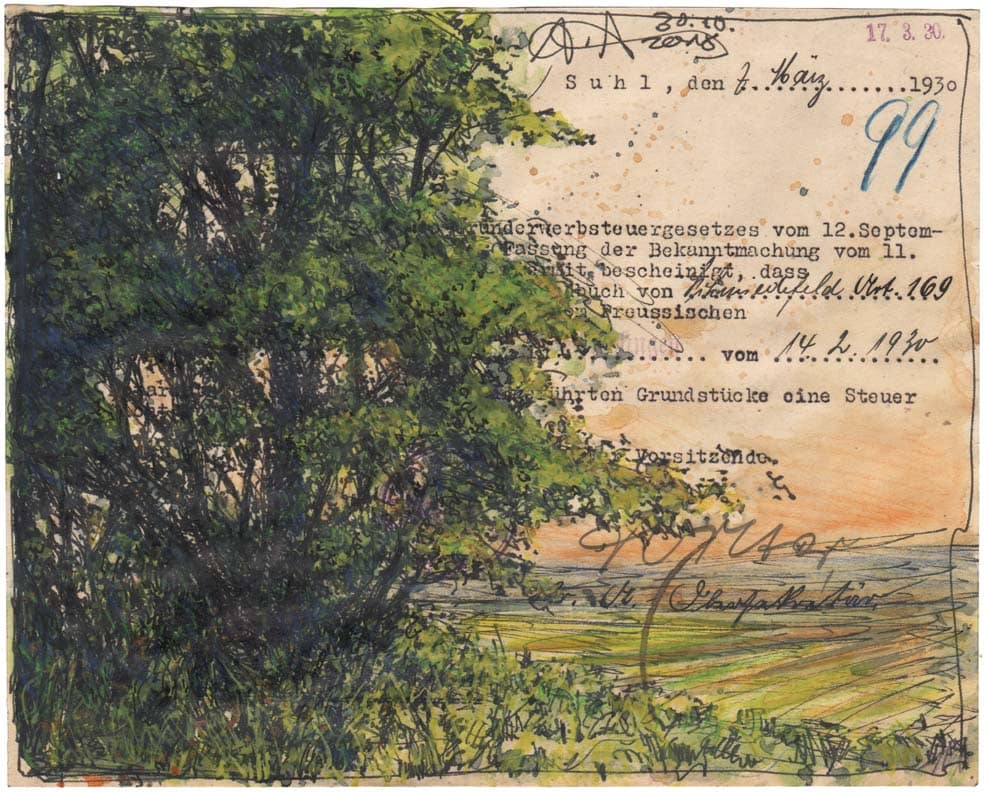 30.10.
2018
17. 3. 30.
Suhl, den 7. März 1930
99
runderwerbsteuergesetzes vom 12.Septem-
Fassung der Bekanntmachung vom 11.
ermit bescheinigt, dass
dbuch von Vrt. 169
Preussischen
vom 14. 2. 1930
führten Grundstücke eine Steuer
Vorsitzende.
Obersekretär.